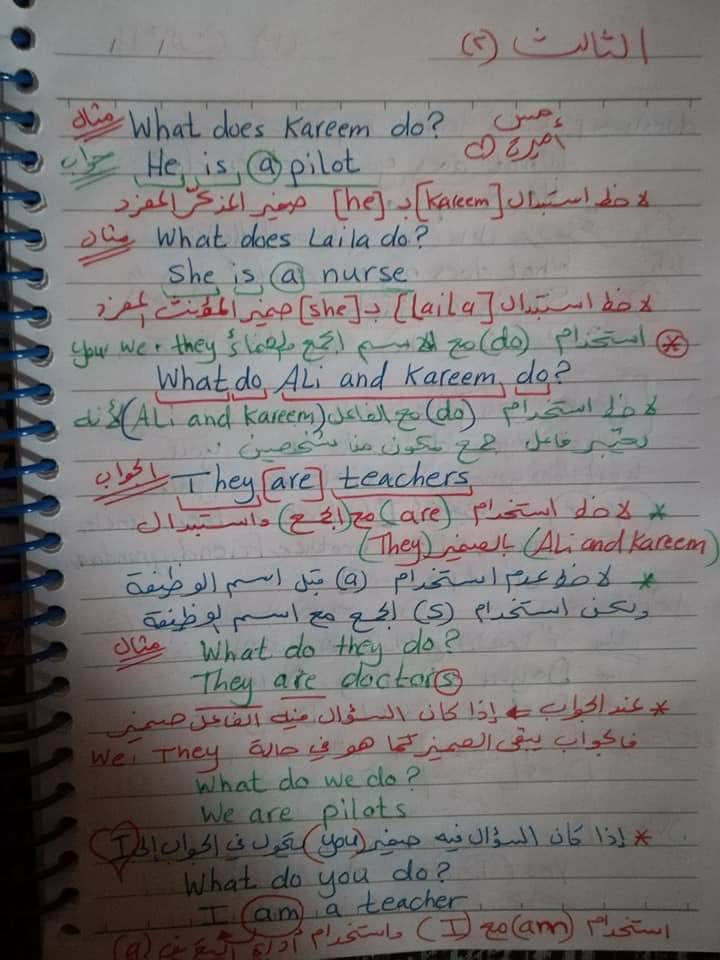 الثالث (٢)
مثال What does Kareem do?
جواب He is a pilot
لاحظ استبدال [Kareem] بـ [he] ضمير المذكر المفرد
مثال What does Laila do?
She is a nurse
لاحظ استبدال [Laila] بـ [she] ضمير المؤنث المفرد
* استخدام (do) مع الاسم الجمع you we، they
What do ALi and Kareem do?
لاحظ استخدام (do) مع الفاعل (ALi and Kareem) لأنه
يعتبر فاعل جمع مكون من شخصين
الجواب They [are] teachers
* لاحظ استخدام (are) مع (الجمع) واستبدال
(ALi and Kareem) بالضمير (They)
* لاحظ عدم استخدام (a) قبل اسم الوظيفة
ولكن استخدام (s) الجمع مع اسم الوظيفة
مثال What do they do?
They are doctors
* عند الجواب إذا كان السؤال فيه الفاعل ضمير
فالجواب يبقى الضمير كما هو في حالة We، They
What do we do?
We are pilots
* إذا كان السؤال فيه ضمير (you) يتحول في الجواب إلى I
What do you do?
I am a teacher
استخدام (am) مع (I) واستخدام أداة (a)